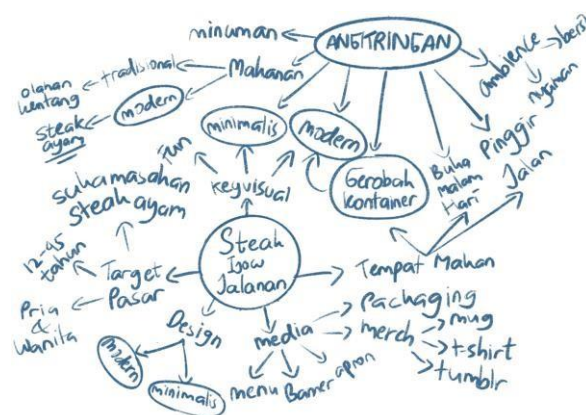 minuman
ANGKRINGAN
ambience
bersih
nyaman
Makanan
tradisional
olahan
kentang
modern
steak
ayam
minimalis
modern
Gerobak
kontainer
Buka
Malam
Hari
Pinggir
Jalan
fun
keyvisual
suka masakan
steak ayam
Steak
Jalanan
Target
Pasar
12-45
tahun
Pria
&
Wanita
Tempat Makan
Design
modern
minimalis
media
menu
Banner
apron
packaging
merch
mug
t-shirt
tumblr